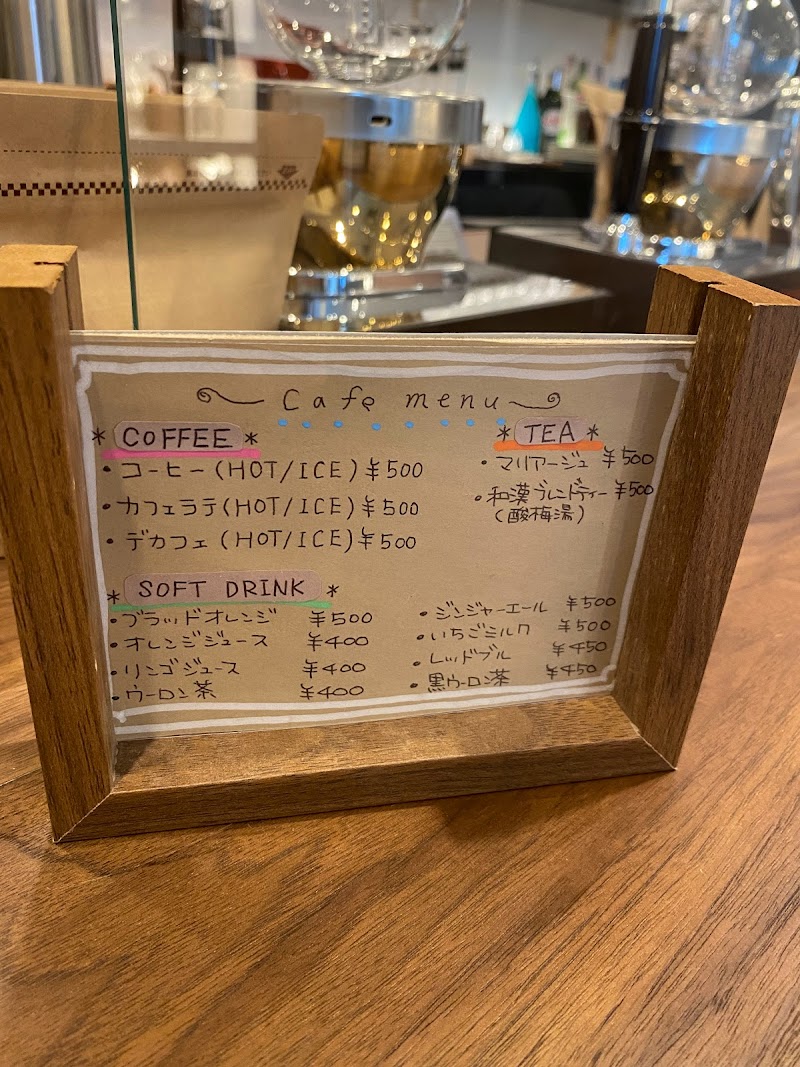 Cafe menu
*COFFEE*
・コーヒー(HOT/ICE)¥500
・カフェラテ(HOT/ICE)¥500
・デカフェ(HOT/ICE)¥500
*TEA*
・マリアージュ ¥500
・和漢ブレンドティー ¥500
(酸梅湯)
*SOFT DRINK*
・ブラッドオレンジ ¥500
・オレンジジュース ¥400
・リンゴジュース ¥400
・ウーロン茶 ¥400
・ジンジャーエール ¥500
・いちごミルク ¥500
・レッドブル ¥450
・黒ウーロン茶 ¥450